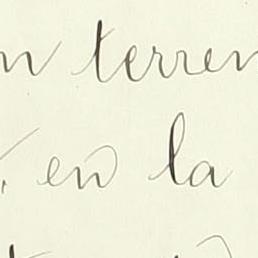 n terren
en la